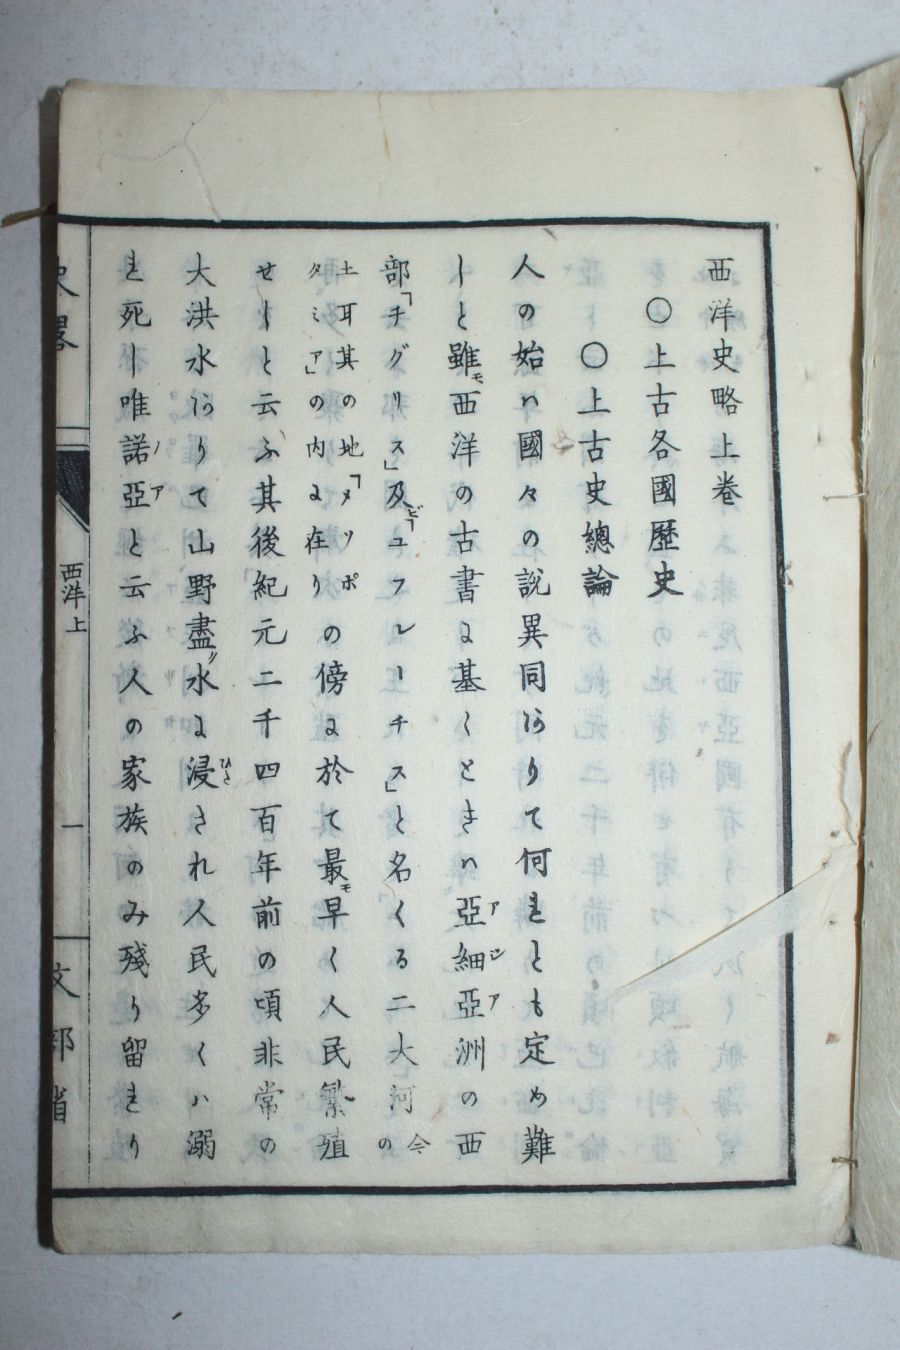 西洋史略上卷
〇上古各國歷史
〇上古史總論
人の始ハ國々の説異同ありて何れとも定め難
しと雖モ西洋の古書に基くときハ亞細亞洲の西
部「チグリス」及ビ「ユフレーチス」と名くる二大河今の
土耳其の地「メソポタミア」の内に在りの傍に於て最モ早く人民繁殖
せしと云ふ其後紀元二千四百年前の頃非常の
大洪水ありて山野盡水に浸され人民多くハ溺
れ死し唯諾亞と云ふ人の家族のみ殘り留れり
史畧
西洋上
一
文部省